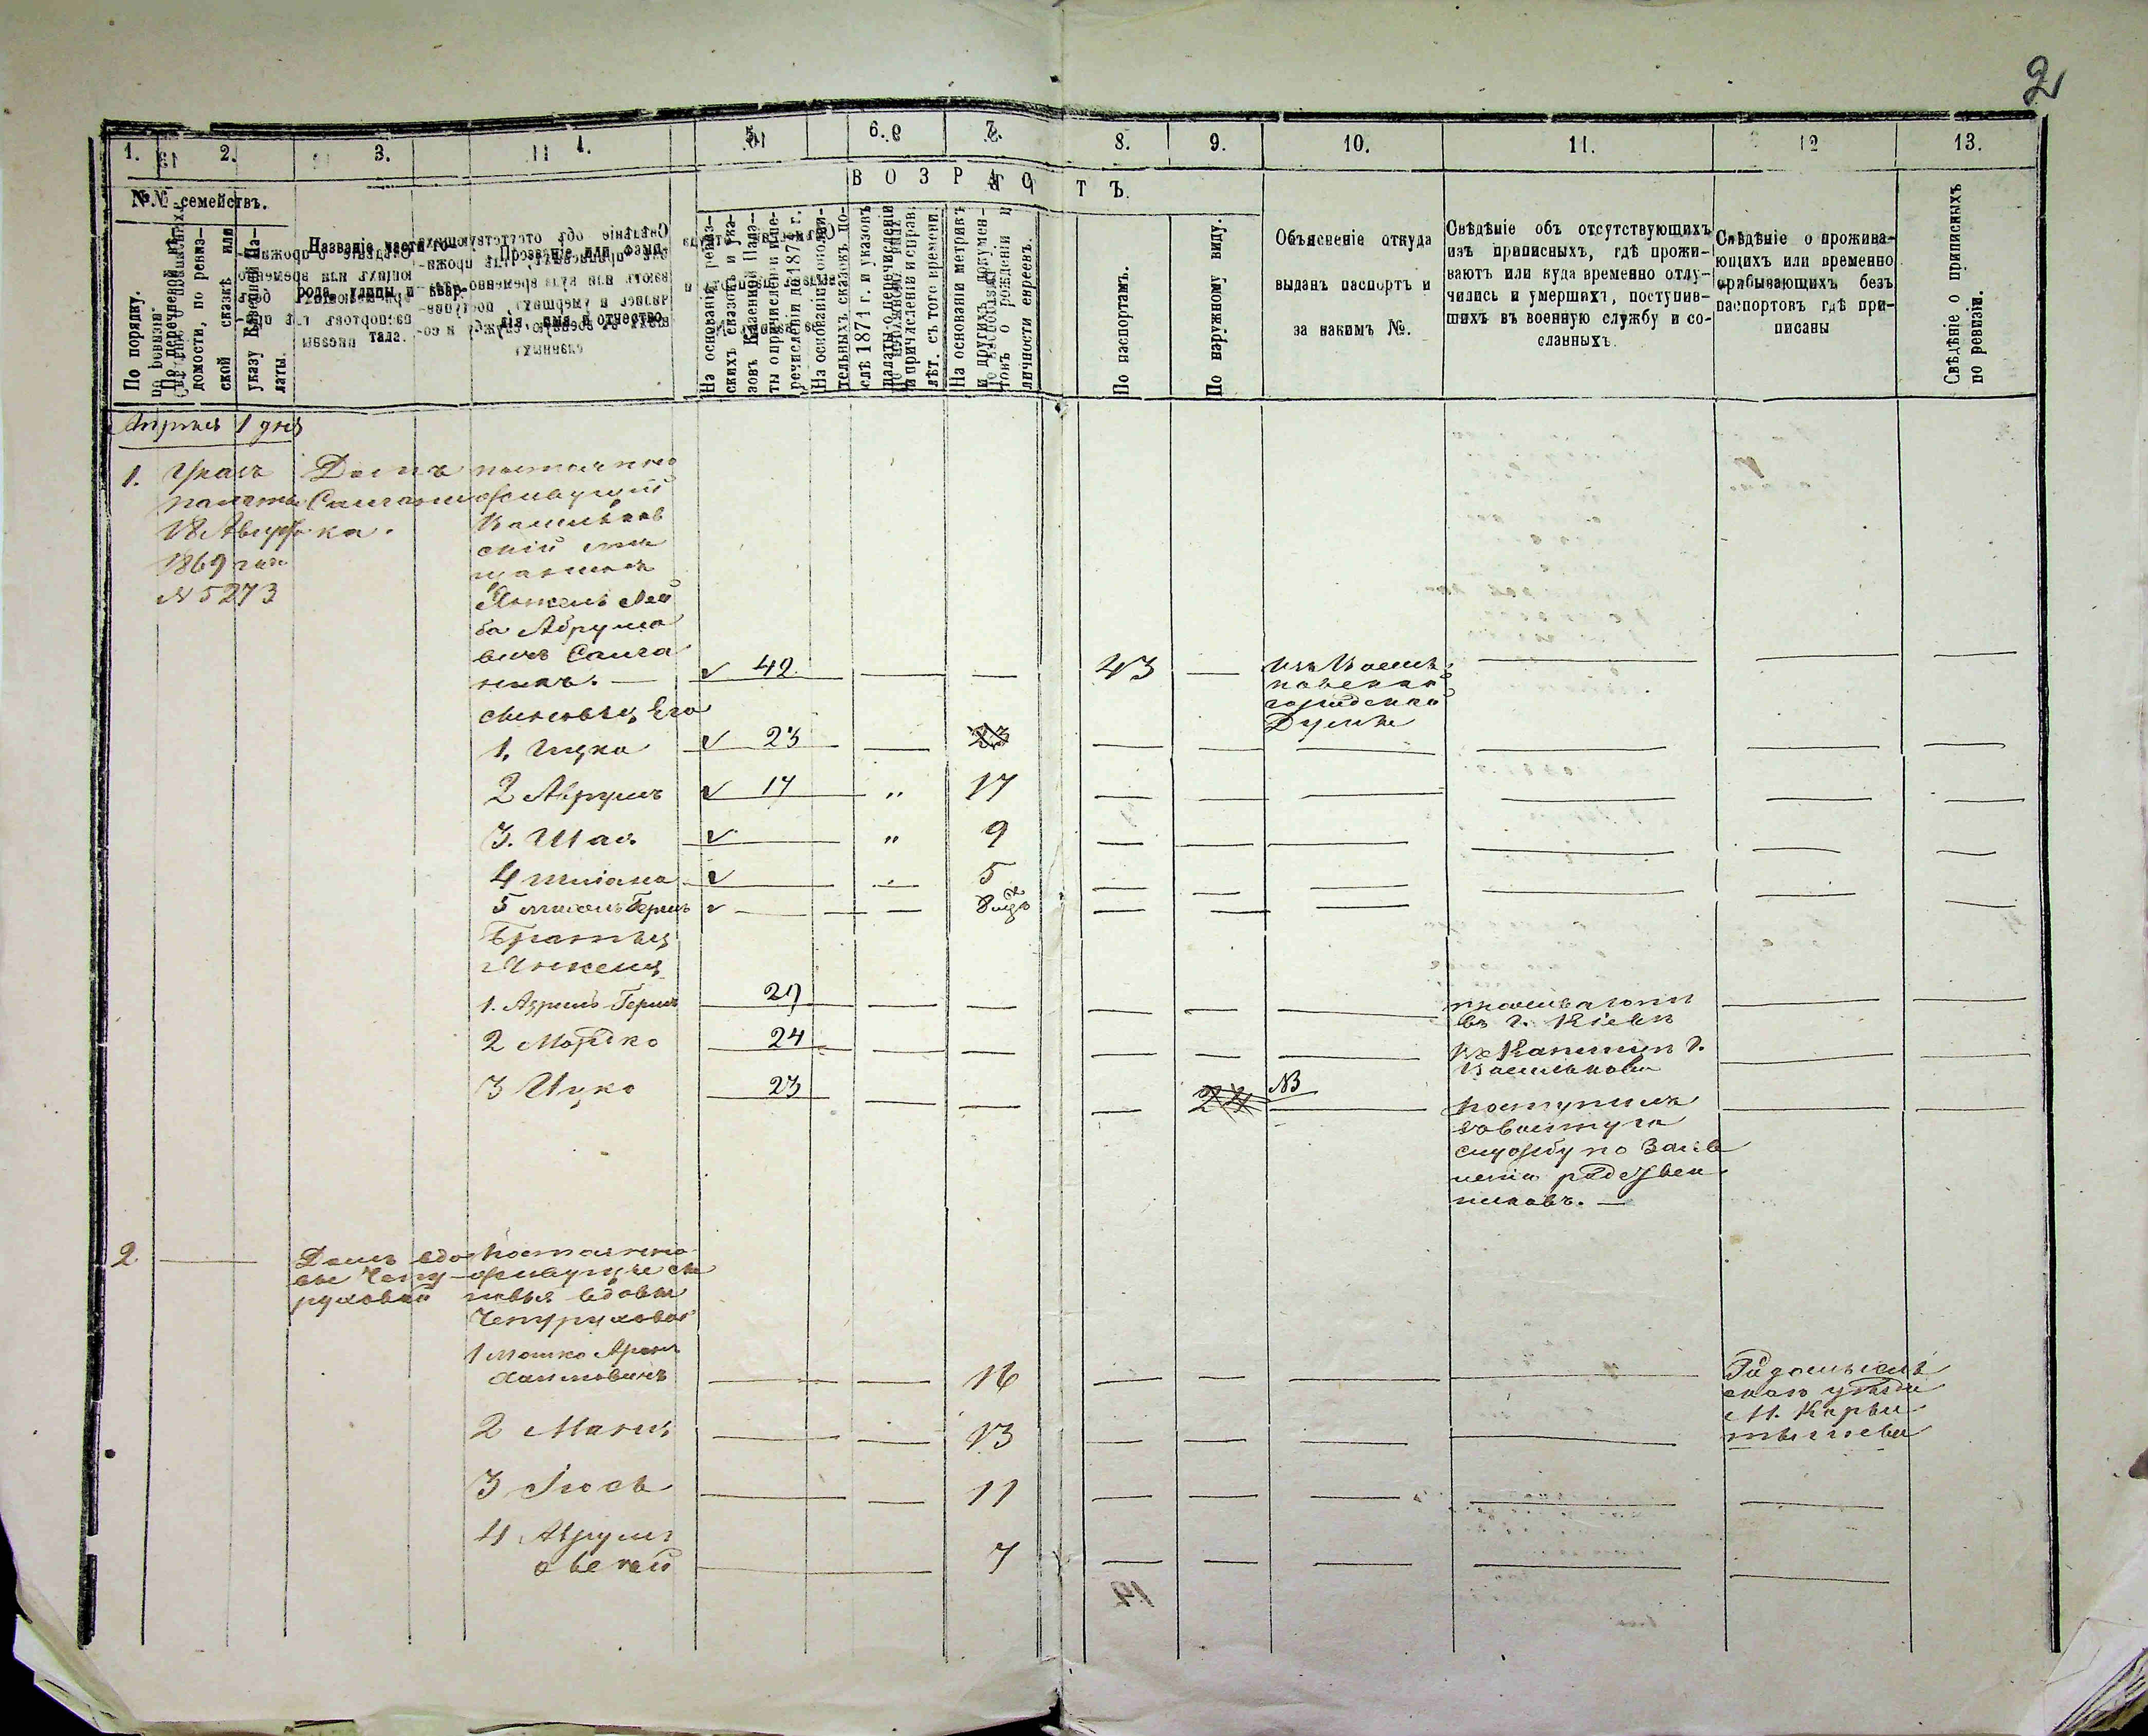 2
1. 2. 3. 4. 5. 6. 7. 8. 9. 10. 11. 12 13.
№№ семействъ.
ВОЗРАСТЪ.
По порядку.
По перечневой вѣ-
домости, по ревиз-
ской сказкѣ или
указу Казенной Па-
латы.
Названіе части го-
рода, улицы и квар-
тала.
На основаніи ревиз-
скихъ сказокъ и ука-
зовъ Казенной Пала-
ты о причисленіи и пе-
речисленіи до 1871 г.
На основаніи дополни-
тельныхъ сказокъ по-
слѣ 1871 г. и указовъ
палаты о перечисленіи
и причисленіи и справ.
лѣт. съ того времени.
На основаніи метрикъ
и другихъ докумен-
товъ о рожденіи и
личности евреевъ.
По паспортамъ.
По наружному виду.
Объясненіе откуда
выданъ паспортъ и
за какимъ №.
Свѣдѣніе объ отсутствующихъ
изъ приписныхъ, гдѣ прожи-
ваютъ или куда временно отлу-
чились и умершихъ, поступив-
шихъ въ военную службу и со-
сланныхъ.
Свѣдѣніе о прожива-
ющихъ или временно
прибывающихъ безъ
паспортовъ гдѣ при-
писаны
Свѣдѣніе о приписныхъ
по ревизіи.
Апрѣля 1 дня
1. Указъ
палаты
18
1869 года
№ 5273
Домъ
постоянно
живущій
Васильков
скій мѣ
щанинъ
Янкель Лей
ба Абрумо
вичъ
42 43
Изъ Василь
ковской
городской
Думы
сыновья Его
1. Ицко 23 23
2 Аврумъ 17 " 17
3. Шая. " 9
4 5
5 Герш 8 мѣц
Братья
Янкеля
1. Азриль Герш 27
проживаетъ
въ г. Кіевѣ
2 Мордко 24
г.
Василькова
3 Ицко 23 24 NB
поступилъ
въ военную
службу по заяв
ленію родствен
никовъ. —
2 Домъ вдо
вы Чепу
руховой
Постоянно
живущіе сы
новья вдовы
Чепуруховой
1 Мошко Арон
Хаимовичъ 16
Радомысль
скаго уѣзда
М. Корыс
тышева
2 13
3 Іось 11
4 Аврумъ
овсей 7